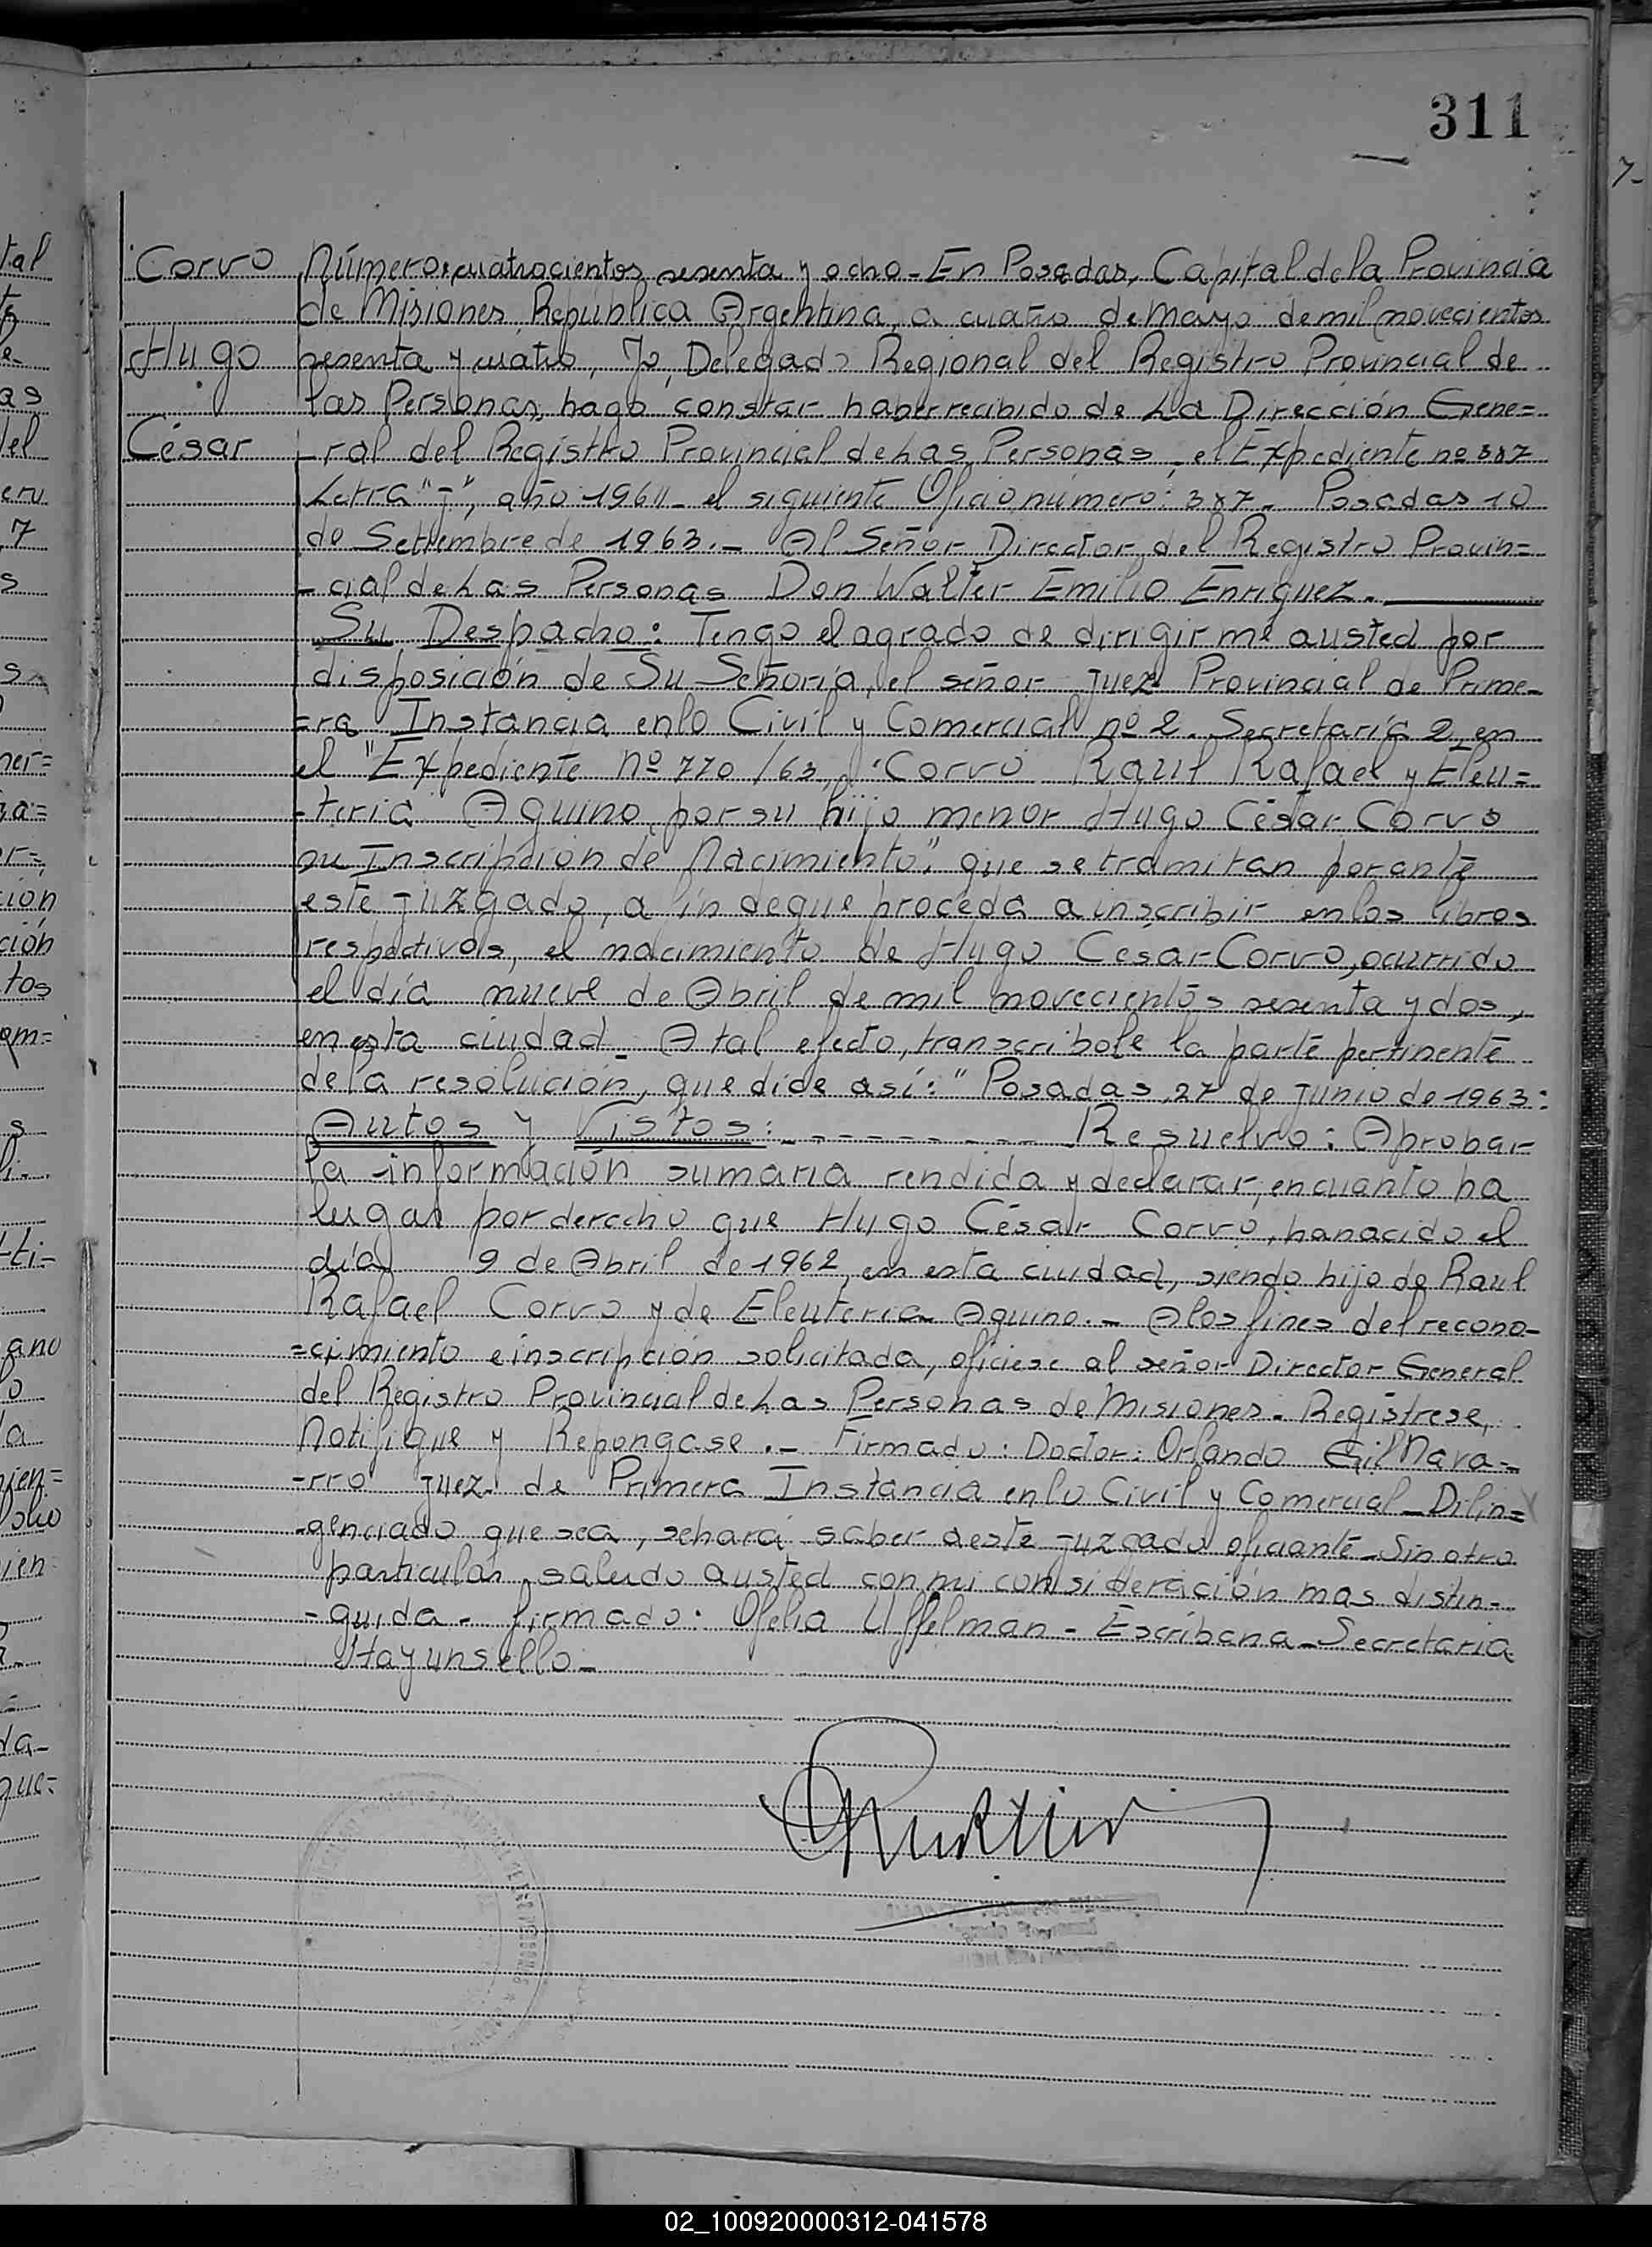 311
Corvo Número cuatrocientos sesenta y ocho - En Posadas, Capital de la Provincia
de Misiones, República Argentina, a cuatro de mayo de mil novecientos
Hugo sesenta y cuatro, Yo, Delegado Regional del Registro Provincial de
las Personas, hago constar haber recibido de La Dirección Gene=
César -ral del Registro Provincial de Las Personas, el Expediente nº 387
Letra "J", año 196 - el siguiente Oficio número: 387 - Posadas 10
de Setiembre de 1963.- Al Señor Director del Registro Provin=
-cial de Las Personas Don Walter Emilio Enriquez.
Su Despacho: Tengo el agrado de dirigirme a usted por
disposición de Su Señoría, el señor Juez Provincial de Prime-
=ra Instancia en lo Civil y Comercial nº 2. Secretaría 2, en
el "Expediente Nº 770/63, "Corvo Raul Rafael y Eleu=
-teria Aquino, por su hijo menor Hugo César Corvo
su Inscripción de Nacimiento", que se tramitan por ante
este Juzgado, a fin de que proceda a inscribir en los libros
respectivos, el nacimiento de Hugo César Corvo, ocurrido
el día nueve de Abril de mil novecientos sesenta y dos,
en esta ciudad - A tal efecto, transcribole la parte pertinente
de la resolución, que dice así: "Posadas, 27 de Junio de 1963:
Autos y Vistos: - - - - - - - - - Resuelvo: Aprobar
la información sumaria rendida y declarar, en cuanto ha
lugar por derecho que Hugo César Corvo, ha nacido el
día 9 de Abril de 1962, en esta ciudad, siendo hijo de Raul
Rafael Corvo y de Eleuteria Aquino.- A los fines del recono-
=cimiento e inscripción solicitada, oficiese al señor Director General
del Registro Provincial de Las Personas de Misiones. Registrese,
Notifique y Repongase.- Firmado: Doctor: Orlando Gil Nava=
-rro Juez de Primera Instancia en lo Civil y Comercial - Dilin=
-genciado que sea, se hará saber a este Juzgado oficiante - Sin otro
particular, saludo a usted con mi consideración mas distin-
-guida - firmado: Ofelia Uffelman - Escribana - Secretaria
Hay un sello -
02_100920000312-041578